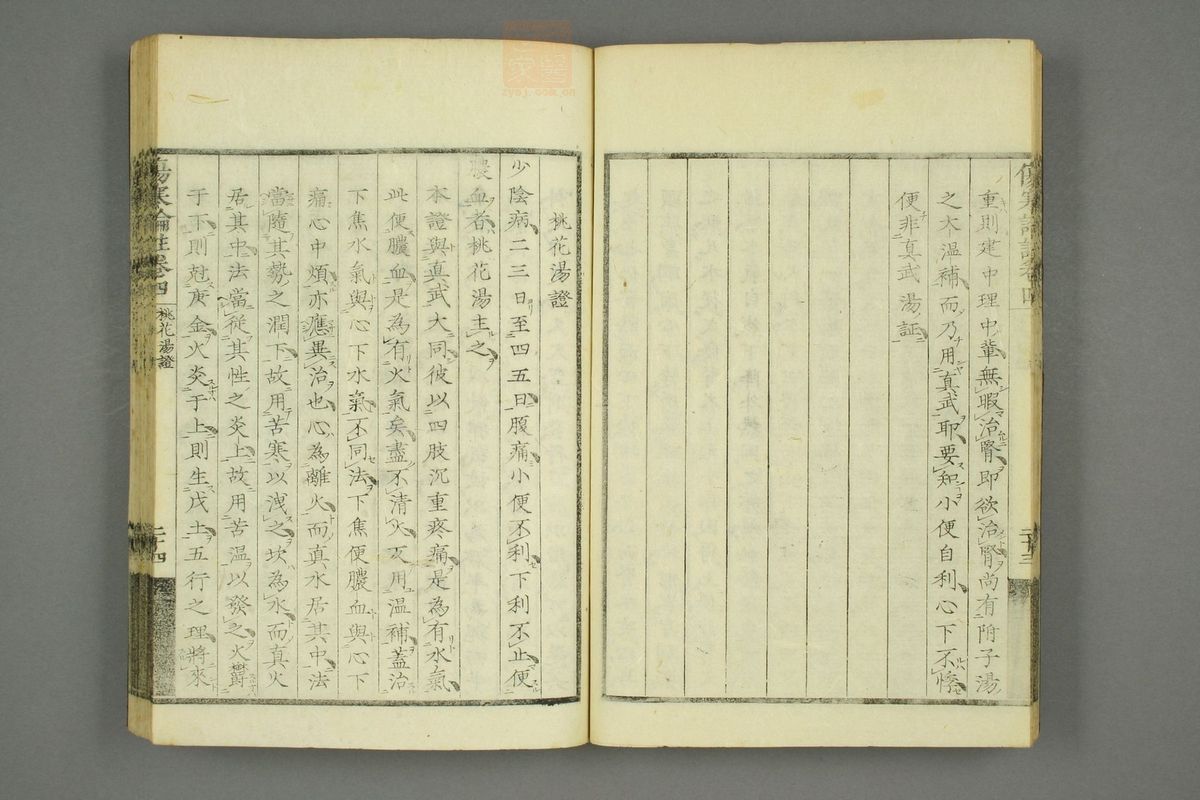 重則建中理中輩無暇治腎即欲治腎尚有附子湯
之大温補而乃用真武耶要知小便自利心下不悸
便非真武湯証
桃花湯證
少陰病二三日至四五日腹痛小便不利下利不止便
膿血者桃花湯主之
本證與真武大同彼以四肢沉重疼痛是為有水氣
此便膿血是為有火氣矣盡不清火反用温補蓋治
下焦水氣與心下水氣不同法下焦便膿血與心下
痛心中煩亦應異治也心為離火而真水居其中法
當隨其勢之潤下故用苦寒以洩之坎為水而真火
居其中法當從其性之炎上故用苦温以發之火鬱
于下則尅庚金火炎于上則生戊土五行之理將來
傷寒論註卷四
桃花湯證
二十四
二十三
zyoj.com.cn